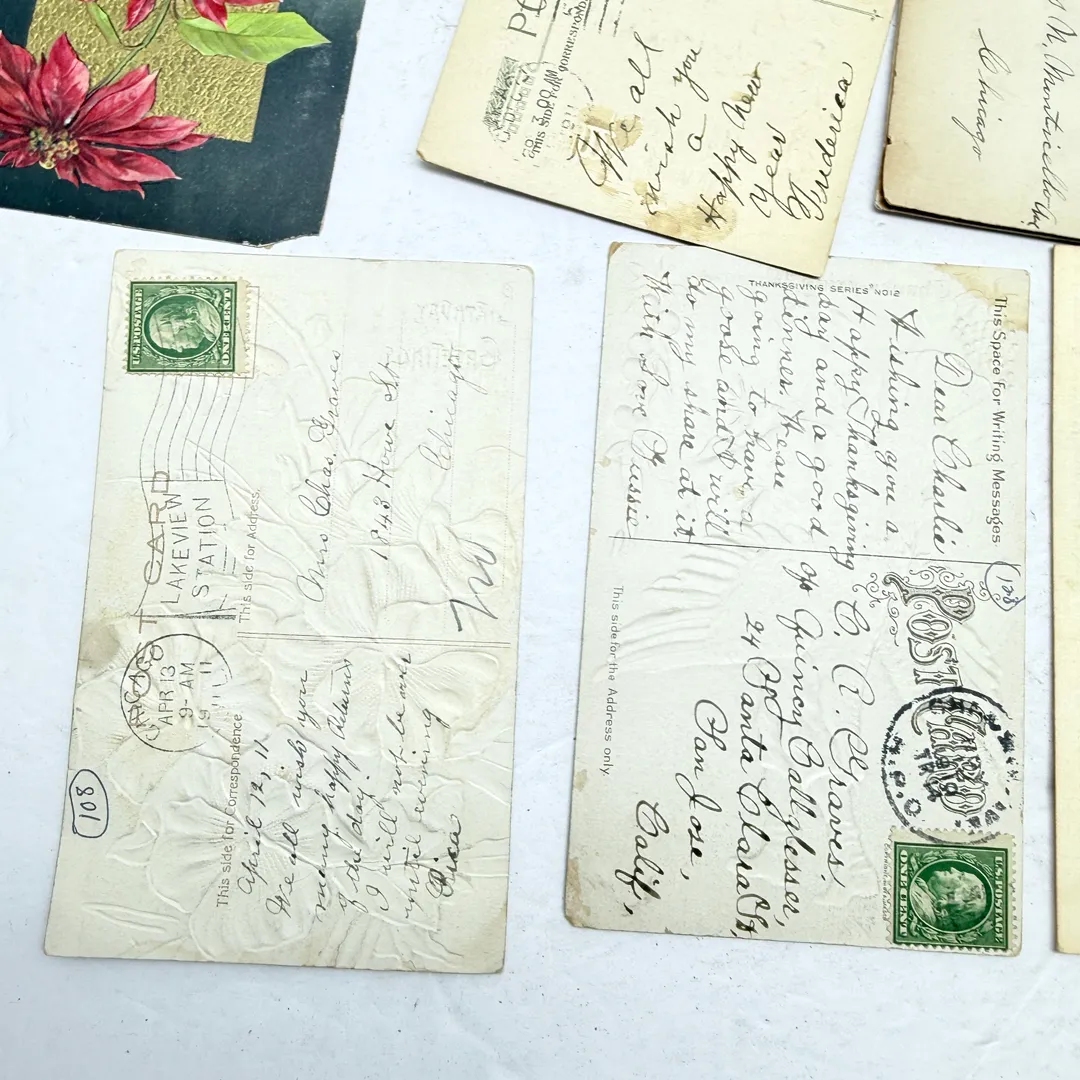 THIS SIDE FOR CORRESPONDENCE
3 00 AM
1911
We all
wish you
a
Happy New
Year
Frederica
N. Monticello Av.
Chicago
U.S. POSTAGE
ONE CENT
T CARD
LAKEVIEW
STATION
This side for Address.
Mrs Chas. Graves
1843 Howe St.
Chicago
CHICAGO
APR 13
9-AM
1911
108
This side for Correspondence
April 12, 11
We all wish you
many happy returns
of the day.
I will not be over
until evening
THANKSGIVING SERIES Nº 12
This Space for Writing Messages.
Dear Charlie
Wishing you a
Happy Thanksgiving
day and a good
dinner. We are
going to have a
goose and I will
do my share at it
With Love Tussie
128
POST CARD
C. A. Graves.
of Quincy Callglesser,
24 Santa Clara St,
San Jose,
Calif,
This side for the Address only.
U.S. POSTAGE
ONE CENT